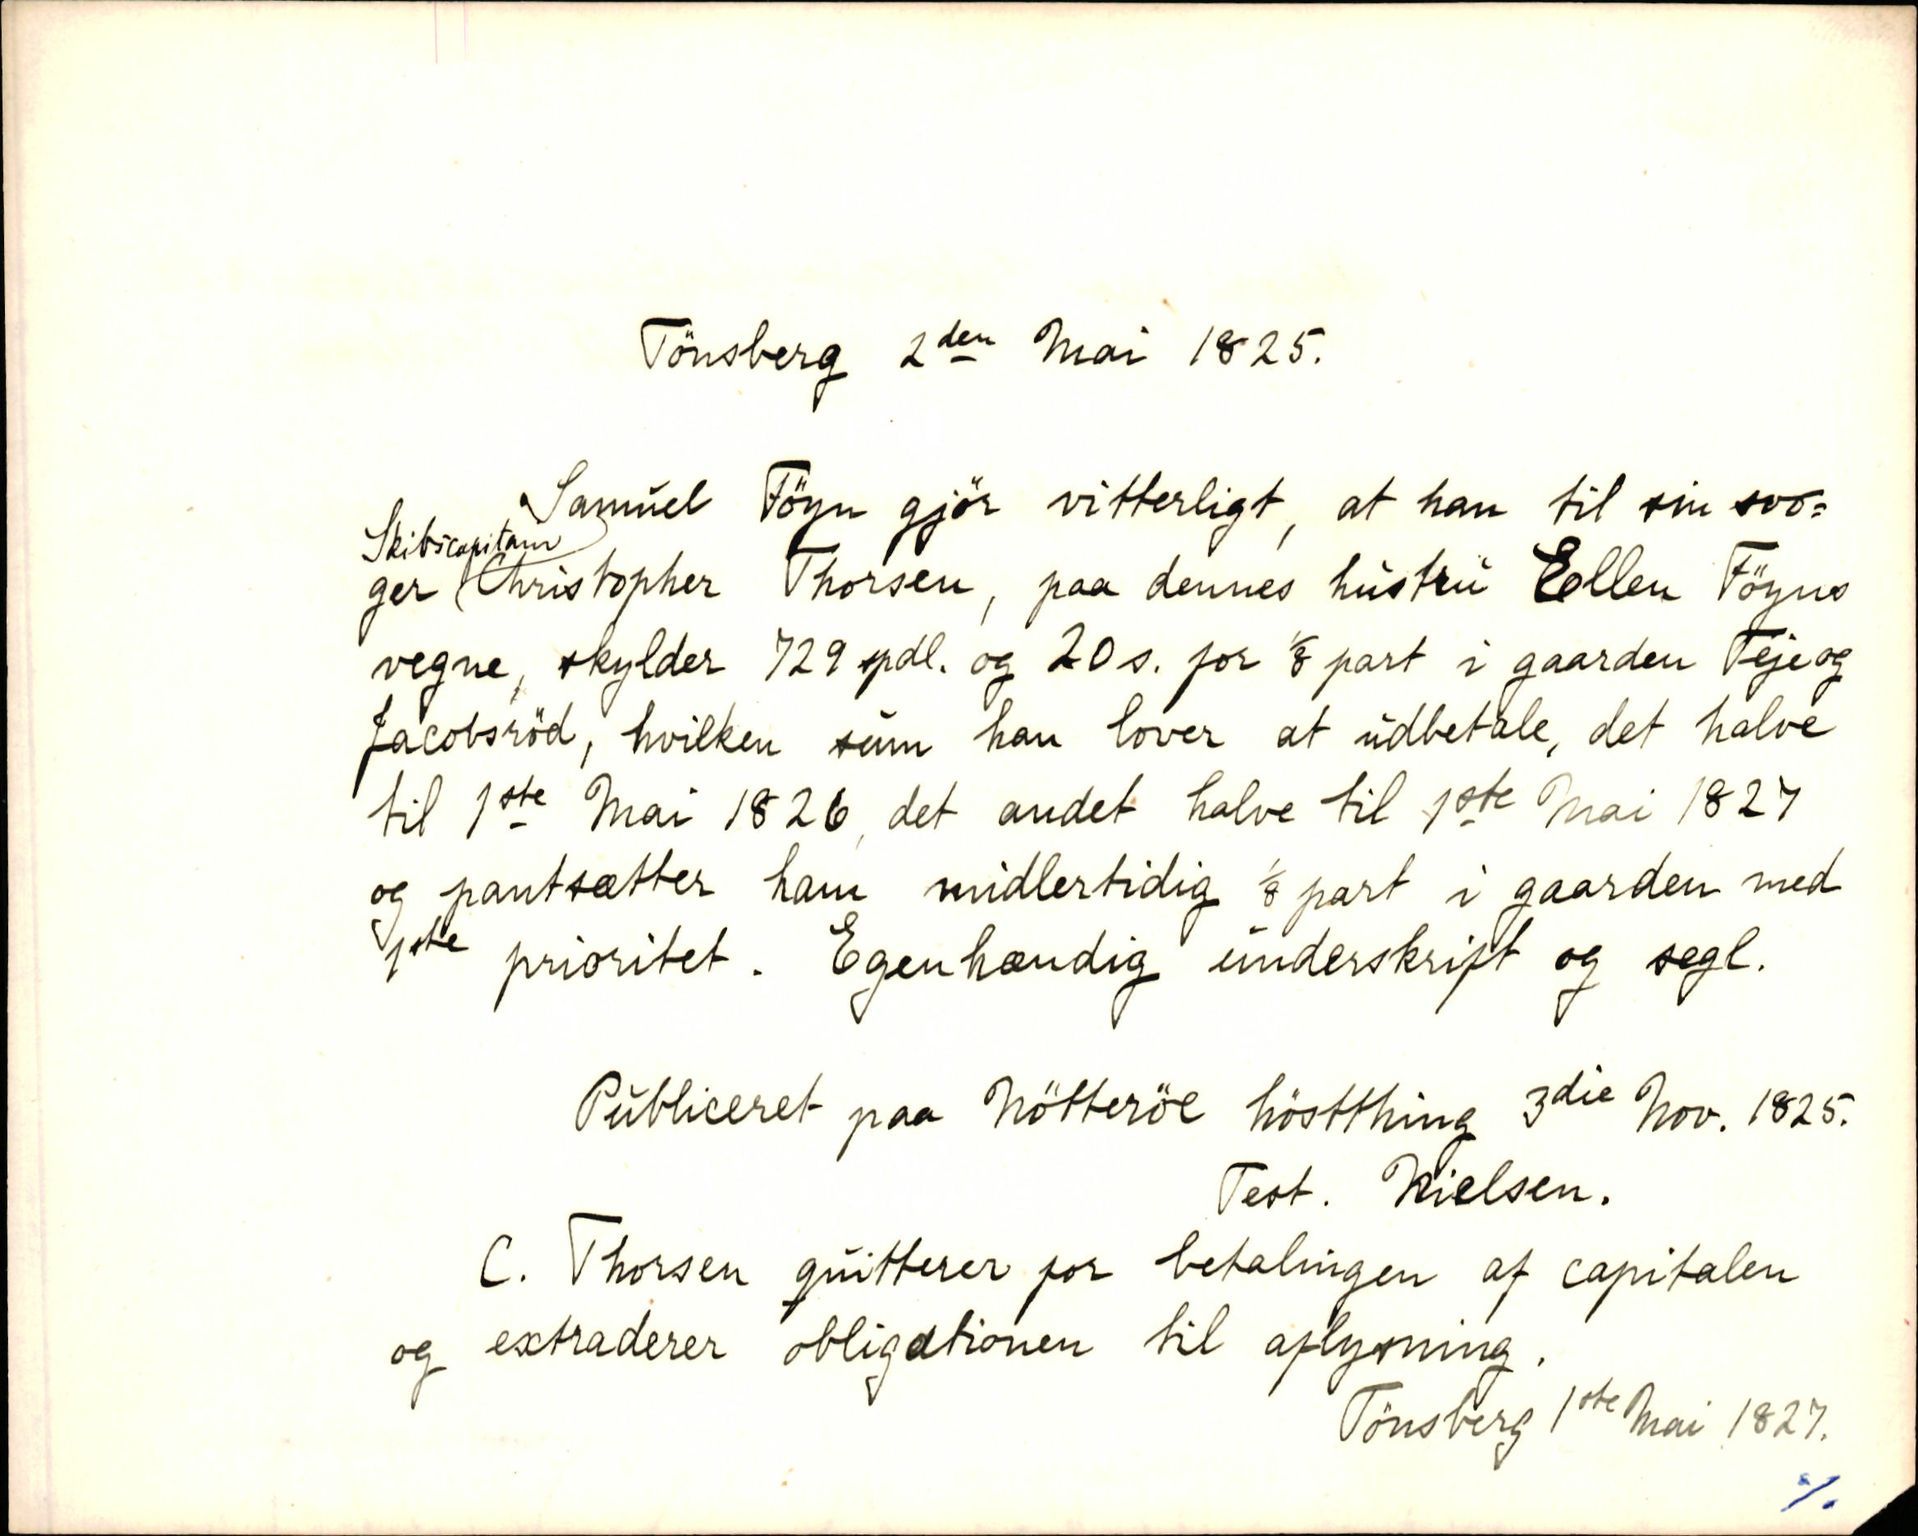 Tönsberg 2den Mai 1825.
Samuel Föyn gjör vitterligt, at han til sin svo=
ger Skibscapitain Christopher Thorsen, paa dennes hustru Ellen Föyns
vegne, skylder 729 spdl. og 20 s. for 1/8 part i gaarden Teje og
Jacobsröd, hvilken sum han lover at udbetale, det halve
til 1ste Mai 1826, det andet halve til 1ste Mai 1827
og pantsætter ham midlertidig 1/8 part i gaarden med
1ste prioritet. Egenhændig underskrift og segl.
Publiceret paa Nötteröe höstthing 3die Nov. 1825.
Test. Nielsen.
C. Thorsen quitterer for betalingen af capitalen
og extraderer obligationen til aflysning.
Tönsberg 1ste Mai 1827.
·/.